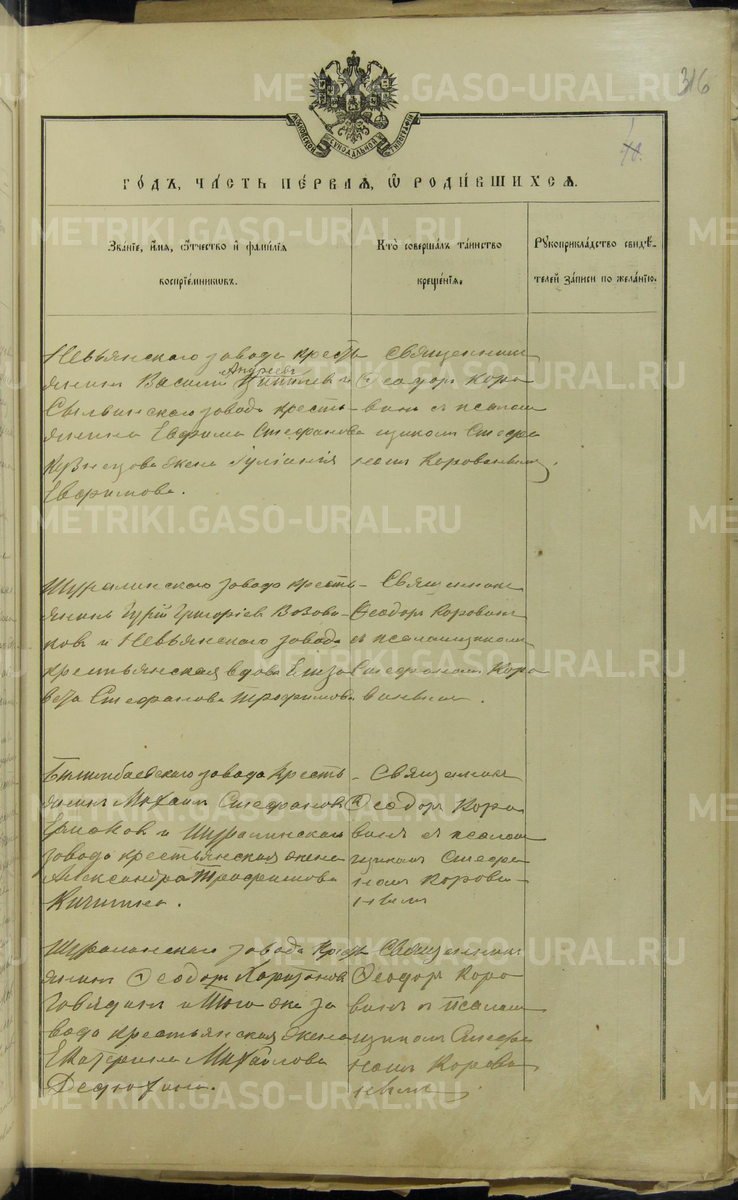 316
МОСКОВСКОЙ СѴНОДАЛЬНОЙ ТИПОГРАФІИ
ГОДЪ, ЧАСТЬ ПЕРВАЯ, Ѡ РОДИВШИХСЯ.
Званіе, имя, отчество и фамилія
воспріемниковъ.
Кто совершалъ таинство
крещенія.
Рукоприкладство свидѣ-
телей записи по желанію.
Невьянскаго завода кресть
янинъ Василій Андреевъ и
Сылвинскаго завода кресть-
янина Евфима Стефанова
Кузнецова жена Іуліанія
Евфимова.
Священникъ
Ѳеодоръ Коро
винъ съ псалом
щикомъ Стефа
номъ Коровинымъ
Шуралинскаго завода кресть-
янинъ Гурій Григоріевъ Возови-
ковъ и Невьянскаго завода
крестьянская вдова Елиза
вета Стефанова Трофимова
Священникъ
Ѳеодоръ Коровинъ
съ псаломщикомъ
Стефаномъ Коро
винымъ.
Билимбаевскаго завода кресть-
янинъ Михаилъ Стефановъ
Ермаковъ и Шуралинскаго
завода крестьянская жена
Александра Трофимова
Кичигина.
Священникъ
Ѳеодоръ Коро
винъ съ псалом
щикомъ Стефа
номъ Корови-
нымъ
Шуралинскаго завода крест
янинъ Ѳеодоръ Харитоновъ
Говядинъ и того же за
вода крестьянская жена
Екатерина Михайлова
Дедюхина.
Священникъ
Ѳеодоръ Коро
винъ съ псалом
щикомъ Стефа
номъ Корови
нымъ
METRIKI.GASO-URAL.RU